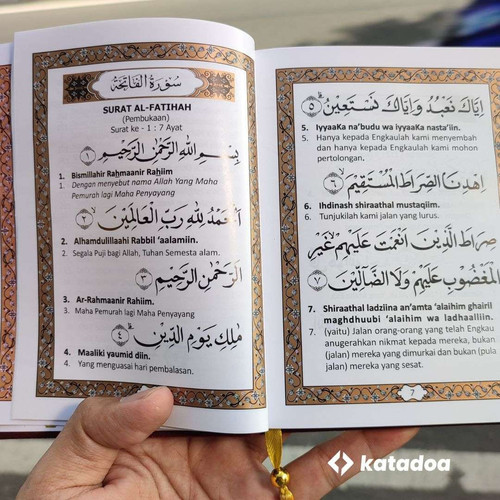 سُوْرَةُ الْفَاتِحَةُ
SURAT AL-FATIHAH
(Pembukaan)
Surat ke - 1 : 7 Ayat
بِسْمِ اللهِ الرَّحْمٰنِ الرَّحِيْمِ ﴿١﴾
1. Bismillahir Raḥmaanir Raḥiim
1. Dengan menyebut nama Allah Yang Maha
Pemurah lagi Maha Penyayang
اَلْحَمْدُ لِلّٰهِ رَبِّ الْعَالَمِيْنَ ﴿٢﴾
2. Alhamdulillaahi Rabbil ‘aalamiin.
2. Segala Puji bagi Allah, Tuhan Semesta alam.
الرَّحْمٰنِ الرَّحِيْمِ ﴿٣﴾
3. Ar-Rahmaanir Rahiim.
3. Maha Pemurah lagi Maha Penyayang
مٰلِكِ يَوْمِ الدِّيْنِ ﴿٤﴾
4. Maaliki yaumid diin.
4. Yang menguasai hari pembalasan.
اِيَّاكَ نَعْبُدُ وَاِيَّاكَ نَسْتَعِيْنُ ﴿٥﴾
5. IyyaaKa na’budu wa iyyaaKa nasta’iin.
5. Hanya kepada Engkaulah kami menyembah
dan hanya kepada Engkaulah kami mohon
pertolongan.
اِهْدِنَا الصِّرَاطَ الْمُسْتَقِيْمَ ﴿٦﴾
6. Ihdinash shiraathal mustaqiim.
6. Tunjukilah kami jalan yang lurus.
صِرَاطَ الَّذِيْنَ اَنْعَمْتَ عَلَيْهِمْ غَيْرِ
الْمَغْضُوْبِ عَلَيْهِمْ وَلَا الضَّالِّيْنَ ﴿٧﴾
7. Shiraathal ladziina an’amta ‘alaihim ghairil
maghdhuubi ‘alaihim wa ladhaalliin.
7. (yaitu) Jalan orang-orang yang telah Engkau
anugerahkan nikmat kepada mereka, bukan
(jalan) mereka yang dimurkai dan bukan (pula
jalan) mereka yang sesat.
7
katadoa